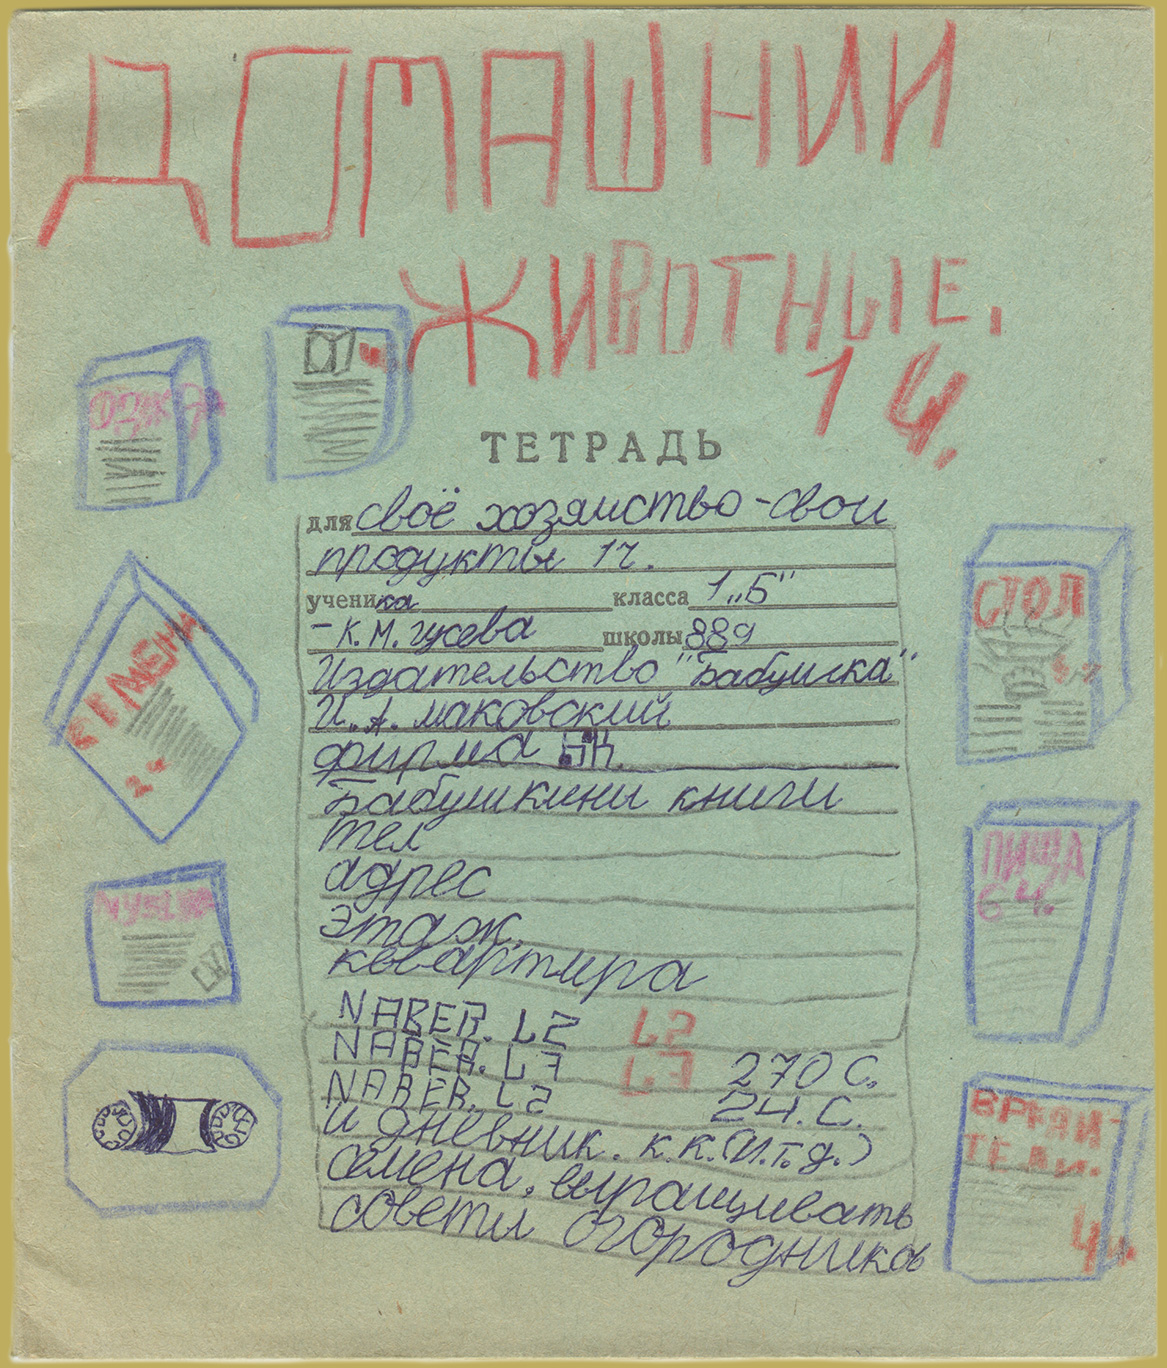 ДОМАШНИИ
ЖИВОТНЫЕ.
1 Ч.
ТЕТРАДЬ
для своё хозяиство - свои
продукты 1ч.
ученика класса 1 „Б"
- К. М. гусева школы 889
Издательство "Бабушка"
И. А. маковский
фирма БК.
Бабушкины книги
тел
адрес
этаж.
квартира
NABER. L2 L2
NABER. L7 L7 270 С.
NABER. L2 24. С.
и дневник. к.к. (и.т.д.)
семена. выращивать
совети огородников
СТОЛ
ПИЩА
6 Ч.
2 ч
ВРЕДИ-
ТЕЛИ.
4 ч.